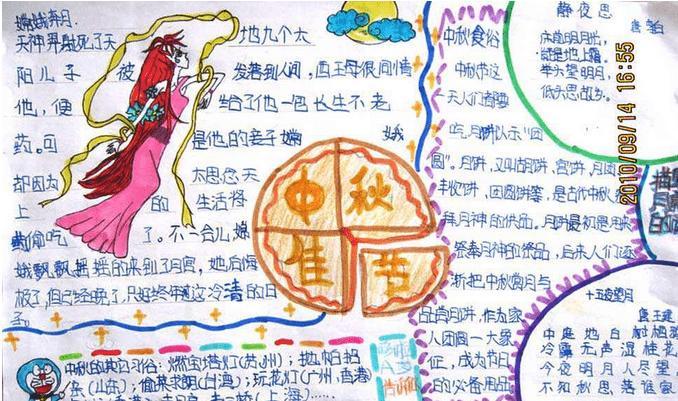 嫦娥奔月
天神羿射死了天
地九个太
阳儿子 被
发落到人间，西王母很同情
他，便
给了他一包长生不老
药。可
是他的妻子嫦
娥
却因为
太思念天
上
的
生活将
药偷吃
了。不一会儿嫦
娥飘飘摇摇的来到了月宫，她后悔
极了，但已经晚了，只好终年
这冷清的日
子。
中秋
佳节
中秋食俗
中秋节这
一天人们都要
吃月饼以示"团
圆"。月饼，又叫胡饼、宫饼、月团
丰收饼、团圆饼等，是古代中秋
拜月神的供品。月饼最初是用来
祭奉月神的祭品，后来人们逐
渐把中秋赏月与
品尝月饼，作为家
人团圆一大象
征，成为节日
的必备用品
静夜思
李白
床前明月光，
疑是地上霜。
举头望明月，
低头思故乡。
2010/09/14 16:55
十五夜望月
王建
中庭地白树栖鸦
冷露无声湿桂花
今夜明月人尽望，
不知秋思落谁家
中秋的其它习俗：燃宝塔灯(苏州)；
亲(山东)；偷菜求郎(台湾)；玩花灯(广州，香港)
(上海)……